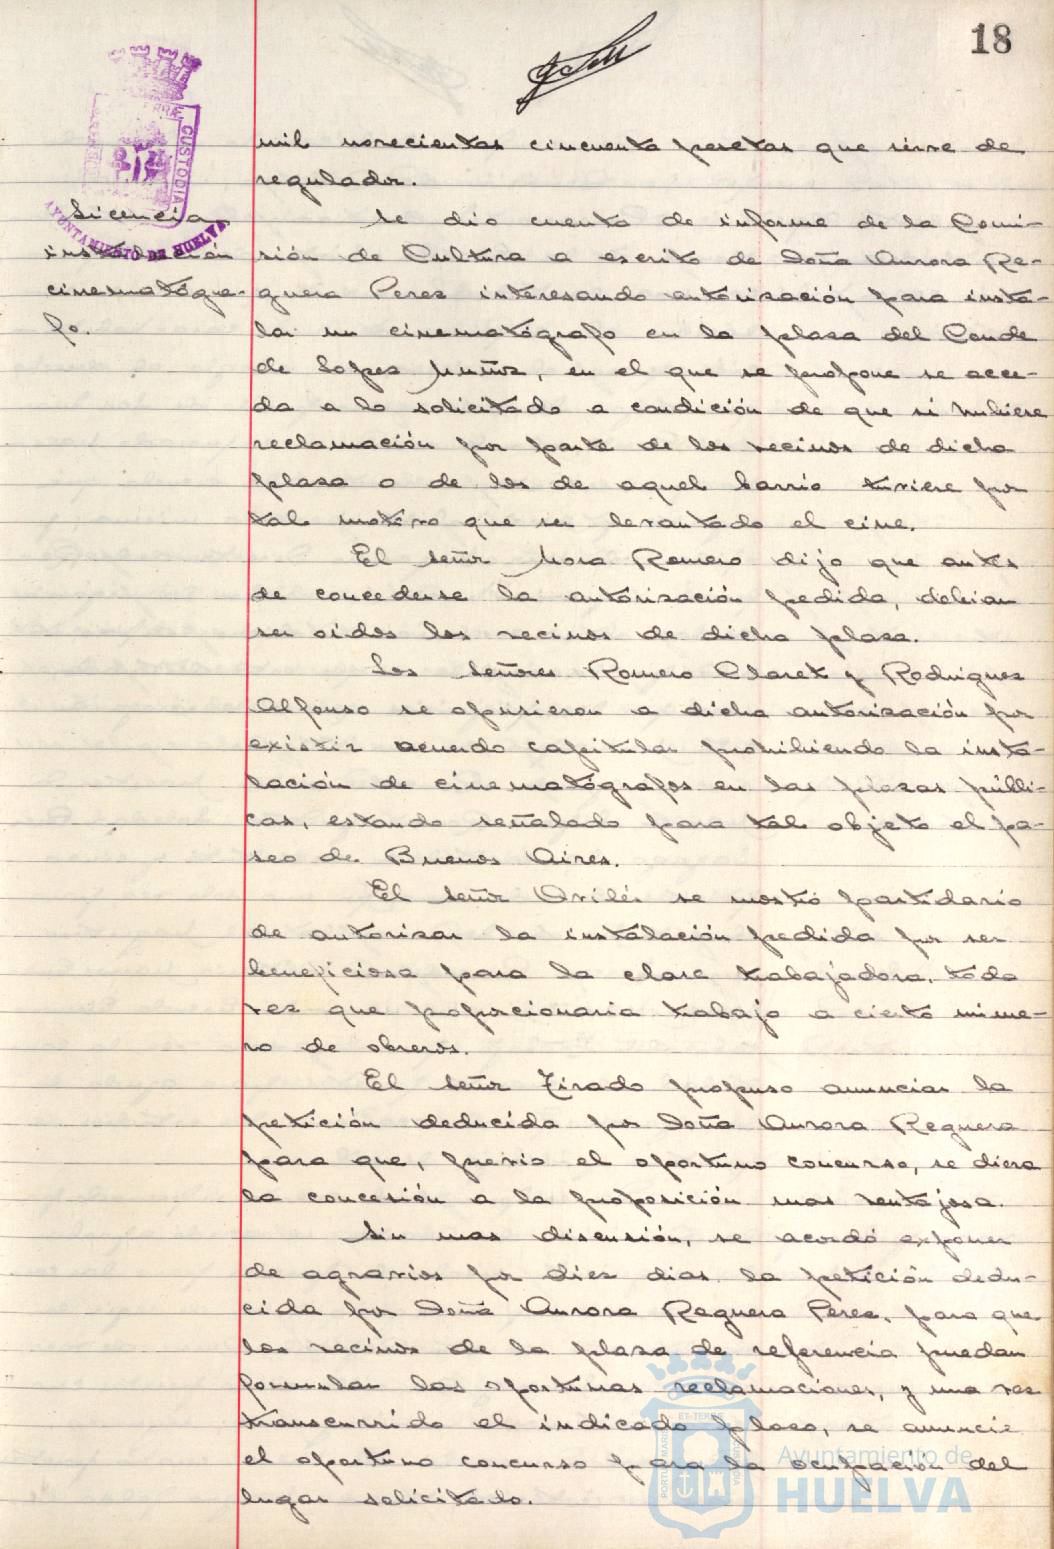 18
mil novecientas cincuenta pesetas que sirve de
regulador.
Licencia
instalación
cinematógra-
fo.
Se dio cuenta de informe de la Comi-
sión de Cultura a escrito de Doña Aurora Re-
guera Perez interesando autorización para insta-
lar un cinematógrafo en la plaza del Conde
de Lopez Muñoz, en el que se propone se acce-
da a lo solicitado a condición de que si hubiese
reclamación por parte de los vecinos de dicha
plaza o de los de aquel barrio tuviese por
tal motivo que ser levantado el cine.
El señor Mora Romero dijo que antes
de concederse la autorización pedida, debian
ser oidos los vecinos de dicha plaza.
Los señores Romero Claret y Rodriguez
Alfonso se opusieron a dicha autorización por
existir acuerdo capitular prohibiendo la insta-
lación de cinematógrafos en las plazas públi-
cas, estando señalado para tal objeto el pa-
seo de Buenos Aires.
El señor Avilés se mostró partidario
de autorizar la instalación pedida por ser
beneficiosa para la clase trabajadora, toda
vez que proporcionaria trabajo a cierto núme-
ro de obreros.
El señor Tirado propuso anunciar la
petición deducida por Doña Aurora Reguera
para que, previo el oportuno concurso, se diera
la concesión a la proposición mas ventajosa.
Sin mas discusión, se acordó exponer
de agravios por diez dias la petición dedu-
cida por Doña Aurora Reguera Perez, para que
los vecinos de la plaza de referencia puedan
formular las oportunas reclamaciones, y una vez
transcurrido el indicado plazo, se anuncie
el oportuno concurso para la ocupación del
lugar solicitado.
CUSTODIA
AYUNTAMIENTO DE HUELVA
Ayuntamiento de
HUELVA